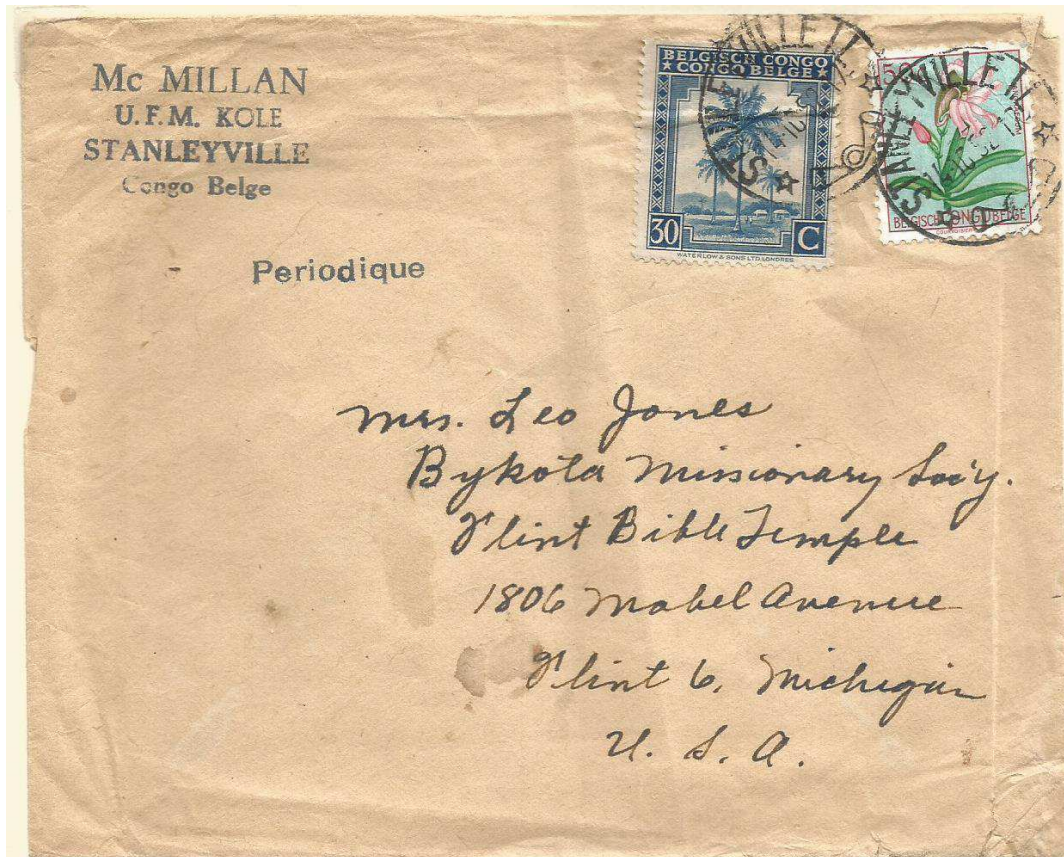 Mc MILLAN
U.F.M. KOLE
STANLEYVILLE
Congo Belge
Periodique
BELGISCH CONGO
★ CONGO BELGE ★
30 C
WATERLOW & SONS LTD. LONDRES
STANLEYVILLE
50
BELGISCH CONGO BELGE
COURVOISIER
STANLEYVILLE
Mrs. Leo Jones
Bykota Missionary Soc'y.
Flint Bible Temple
1806 Mabel Avenue
Flint 6, Michigan
U. S. A.